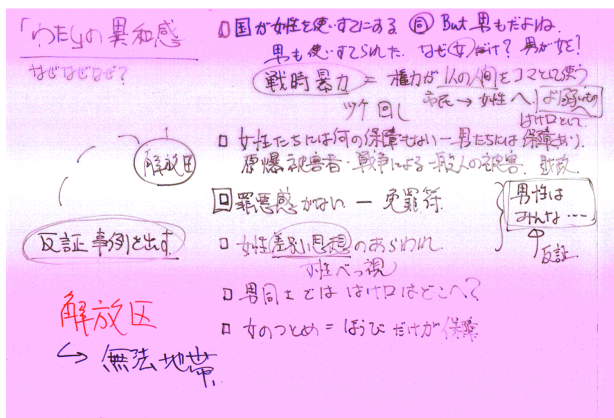 「わたしの異和感
なぜなぜなぜ?
国が女性を使いすてにする 同 But 男もだよね.
男も使いすてられた. なぜ女だけ? 男が女を?
戦時暴力 = 権力が1人の人間をコマとして使う
市民 → 女性へ. より弱いもの
ツケ回し
はけ口として.
女性たちには何の保障もない ー 男たちには保障あり.
原爆被害者・戦争による一般人の被害.
解放区
罪悪感がない ー 免罪符
男性は
みんな…
反証
反証事例を出す
女性差別思想のあらわれ
女性べっ視
男同士では はけ口はどこへ?
女のつとめ = ほうびだけが保障
解放区
↳ 無法地帯.